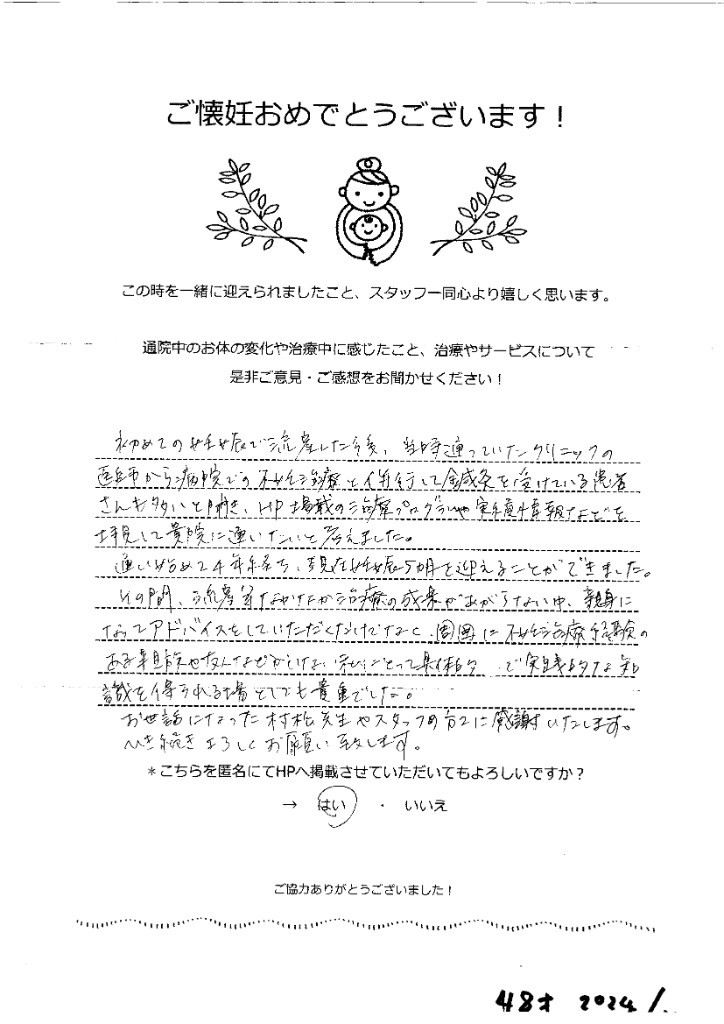 ご懐妊おめでとうございます！
この時を一緒に迎えられましたこと、スタッフ一同心より嬉しく思います。
通院中のお体の変化や治療中に感じたこと、治療やサービスについて
是非ご意見・ご感想をお聞かせください！
初めての妊娠で流産した後、当時通っていたクリニックの
医師から病院での不妊治療と併行して鍼灸を受けている患者
さんも多いと聞き、HP掲載の治療プログラムや実績情報などを
拝見して貴院に通いたいと考えました。
通い始めて4年経ち、現在妊娠5ヵ月を迎えることができました。
その間、流産等なかなか治療の成果があがらない中、親身に
なってアドバイスをしていただくだけでなく、周囲に不妊治療経験の
ある親族や友人などがいない私にとって具体的で実践的な知
識を得られる場としても貴重でした。
お世話になった村松先生やスタッフの方々に感謝いたします。
ひき続きよろしくお願い致します。
＊こちらを匿名にてHPへ掲載させていただいてもよろしいですか？
→ はい ・ いいえ
ご協力ありがとうございました！
48才 2024/.